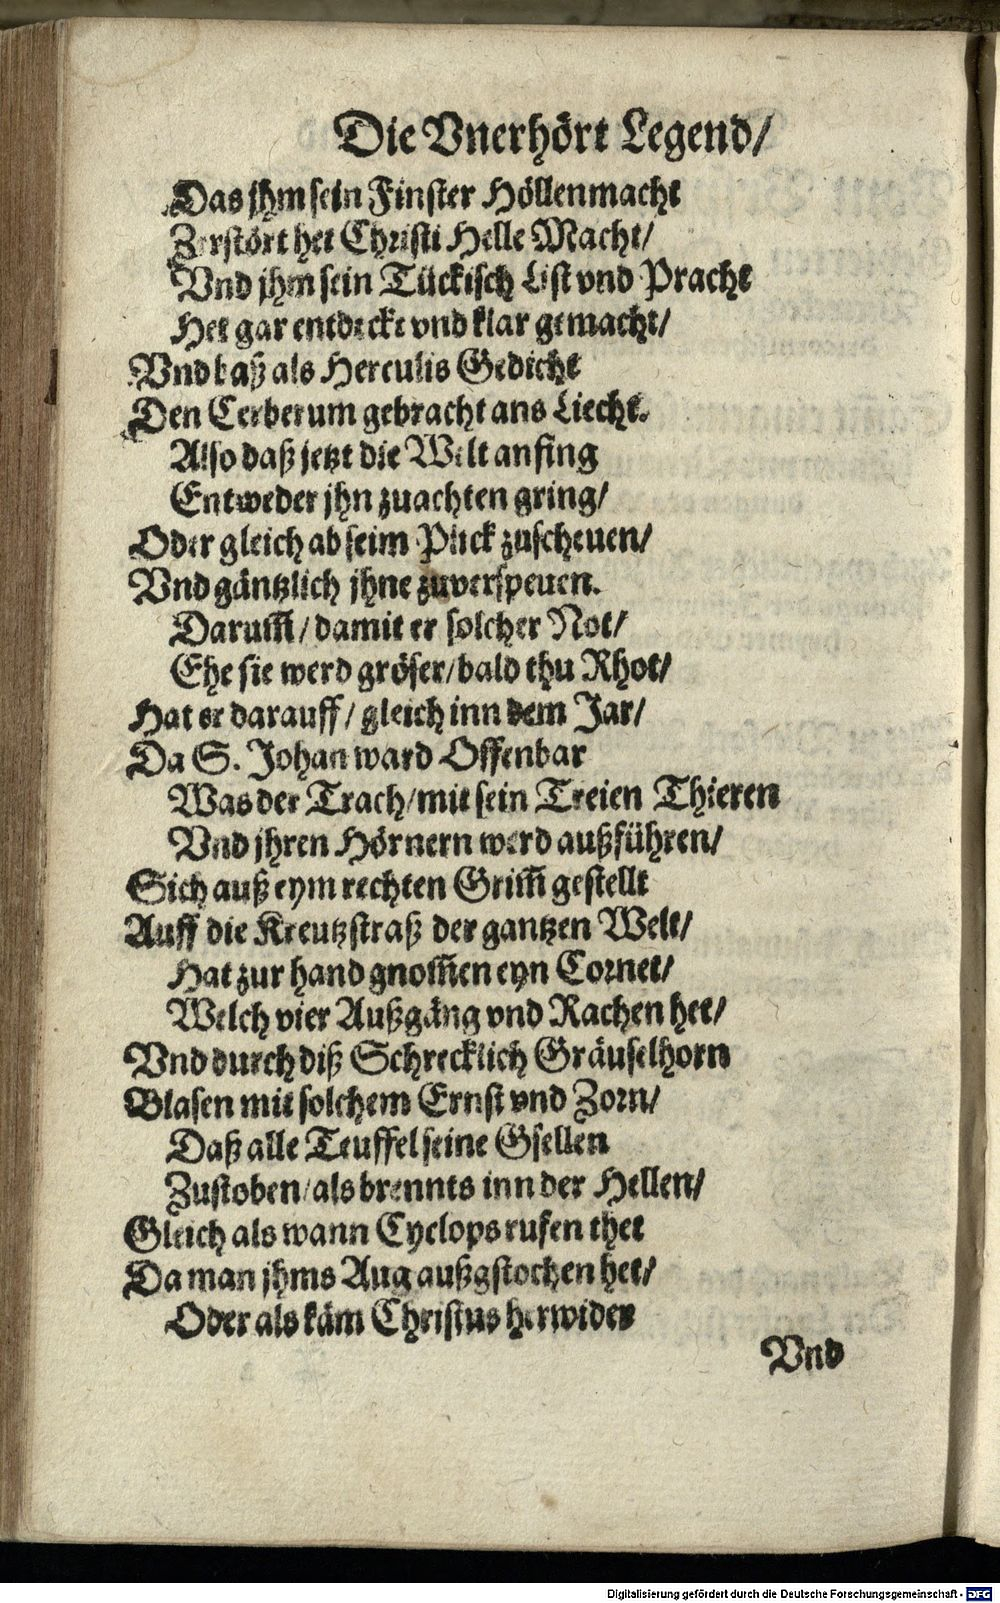 Die Vnerhört Legend/
Das jhm sein Finster Höllenmacht
Zerstört het Christi Helle Macht/
Vnd jhm sein Tückisch List vnd Pracht
Het gar entdeckt vnd klar gemacht/
Vnd baß als Herculis Gedicht
Den Cerberum gebracht ans Liecht.
Also daß jetzt die Welt anfing
Entweder jhn zuachten gring/
Oder gleich ab seim Plick zuscheuen/
Vnd gäntzlich jhne zuverspeuen.
Darum̃/ damit er solcher Not/
Ehe sie werd gröser/ bald thu Rhot/
Hat er darauff/ gleich inn dem Jar/
Da S. Johan ward Offenbar
Was der Trach/ mit sein Treien Thieren
Vnd jhren Hörnern werd außführen/
Sich auß eym rechten Grim̃ gestellt
Auff die Kreutzstraß der gantzen Welt/
Hat zur hand gnom̃en eyn Cornet/
Welch vier Außgäng vnd Rachen het/
Vnd durch diß Schrecklich Gräuselhorn
Blasen mit solchem Ernst vnd Zorn/
Daß alle Teuffel seine Gsellen
Zustoben/ als brennts inn der Hellen/
Gleich als wann Cyclops rufen thet
Da man jhms Aug außgstochen het/
Oder als käm Christus herwider
Vnd
Digitalisierung gefördert durch die Deutsche Forschungsgemeinschaft - DFG